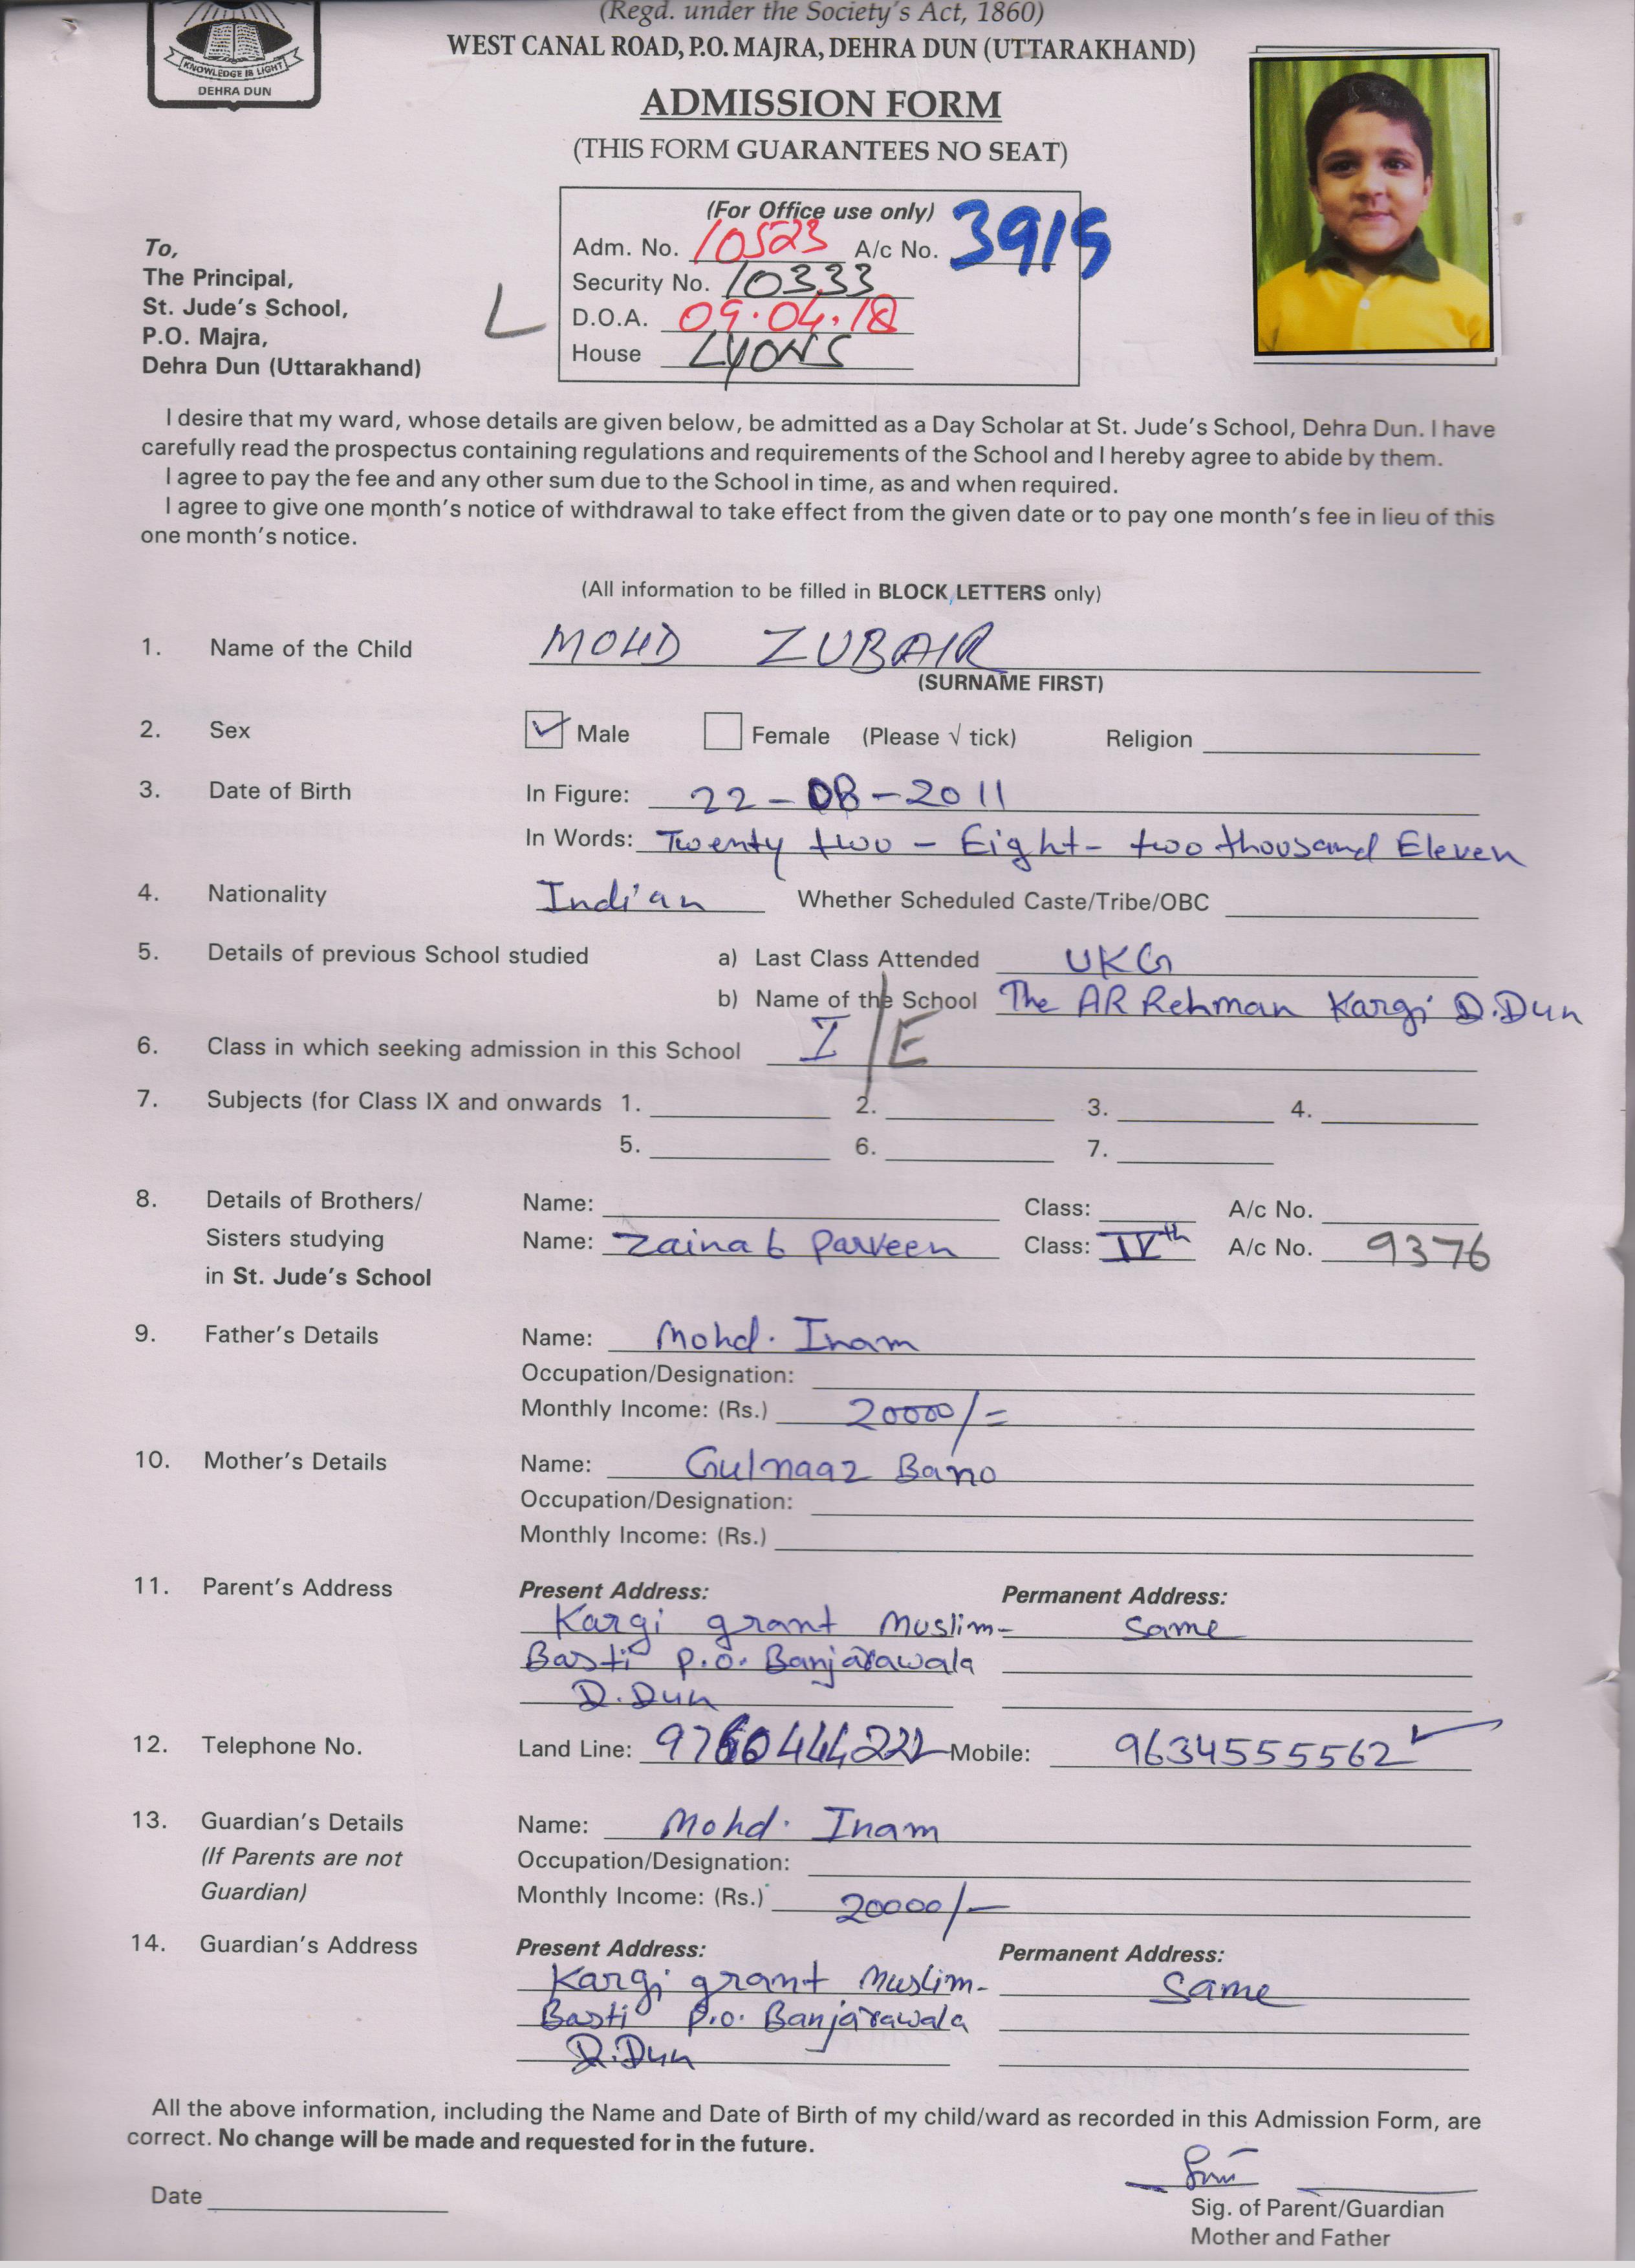 KNOWLEDGE IS LIGHT
DEHRA DUN
(Regd. under the Society's Act, 1860)
WEST CANAL ROAD, P.O. MAJRA, DEHRA DUN (UTTARAKHAND)
ADMISSION FORM
(THIS FORM GUARANTEES NO SEAT)
(For Office use only)
Adm. No. 10523 A/c No. 3915
Security No. 10333
D.O.A. 09.04.18
House LYONS
L
To,
The Principal,
St. Jude's School,
P.O. Majra,
Dehra Dun (Uttarakhand)
I desire that my ward, whose details are given below, be admitted as a Day Scholar at St. Jude's School, Dehra Dun. I have
carefully read the prospectus containing regulations and requirements of the School and I hereby agree to abide by them.
I agree to pay the fee and any other sum due to the School in time, as and when required.
I agree to give one month's notice of withdrawal to take effect from the given date or to pay one month's fee in lieu of this
one month's notice.
(All information to be filled in BLOCK LETTERS only)
1. Name of the Child MOHD ZUBAIR
(SURNAME FIRST)
2. Sex Male Female (Please √ tick) Religion
3. Date of Birth In Figure: 22-08-2011
In Words: Twenty two - Eight - two thousand Eleven
4. Nationality Indian Whether Scheduled Caste/Tribe/OBC
5. Details of previous School studied a) Last Class Attended UKG
b) Name of the School The AR Rehman Kargi D.Dun
6. Class in which seeking admission in this School I/E
7. Subjects (for Class IX and onwards 1. 2. 3. 4.
5. 6. 7.
8. Details of Brothers/ Name: Class: A/c No.
Sisters studying Name: Zainab Parveen Class: IVth A/c No. 9376
in St. Jude's School
9. Father's Details Name: Mohd. Inam
Occupation/Designation:
Monthly Income: (Rs.) 20000/=
10. Mother's Details Name: Gulnaaz Bano
Occupation/Designation:
Monthly Income: (Rs.)
11. Parent's Address Present Address: Permanent Address:
Kargi grant Muslim- Same
Basti P.O. Banjarawala
D.Dun
12. Telephone No. Land Line: 9760444222 Mobile: 9634555562
13. Guardian's Details Name: Mohd. Inam
(If Parents are not Occupation/Designation:
Guardian) Monthly Income: (Rs.) 20000/-
14. Guardian's Address Present Address: Permanent Address:
Kargi grant Muslim- Same
Basti P.O. Banjarawala
D.Dun
All the above information, including the Name and Date of Birth of my child/ward as recorded in this Admission Form, are
correct. No change will be made and requested for in the future.
Date
Sig. of Parent/Guardian
Mother and Father